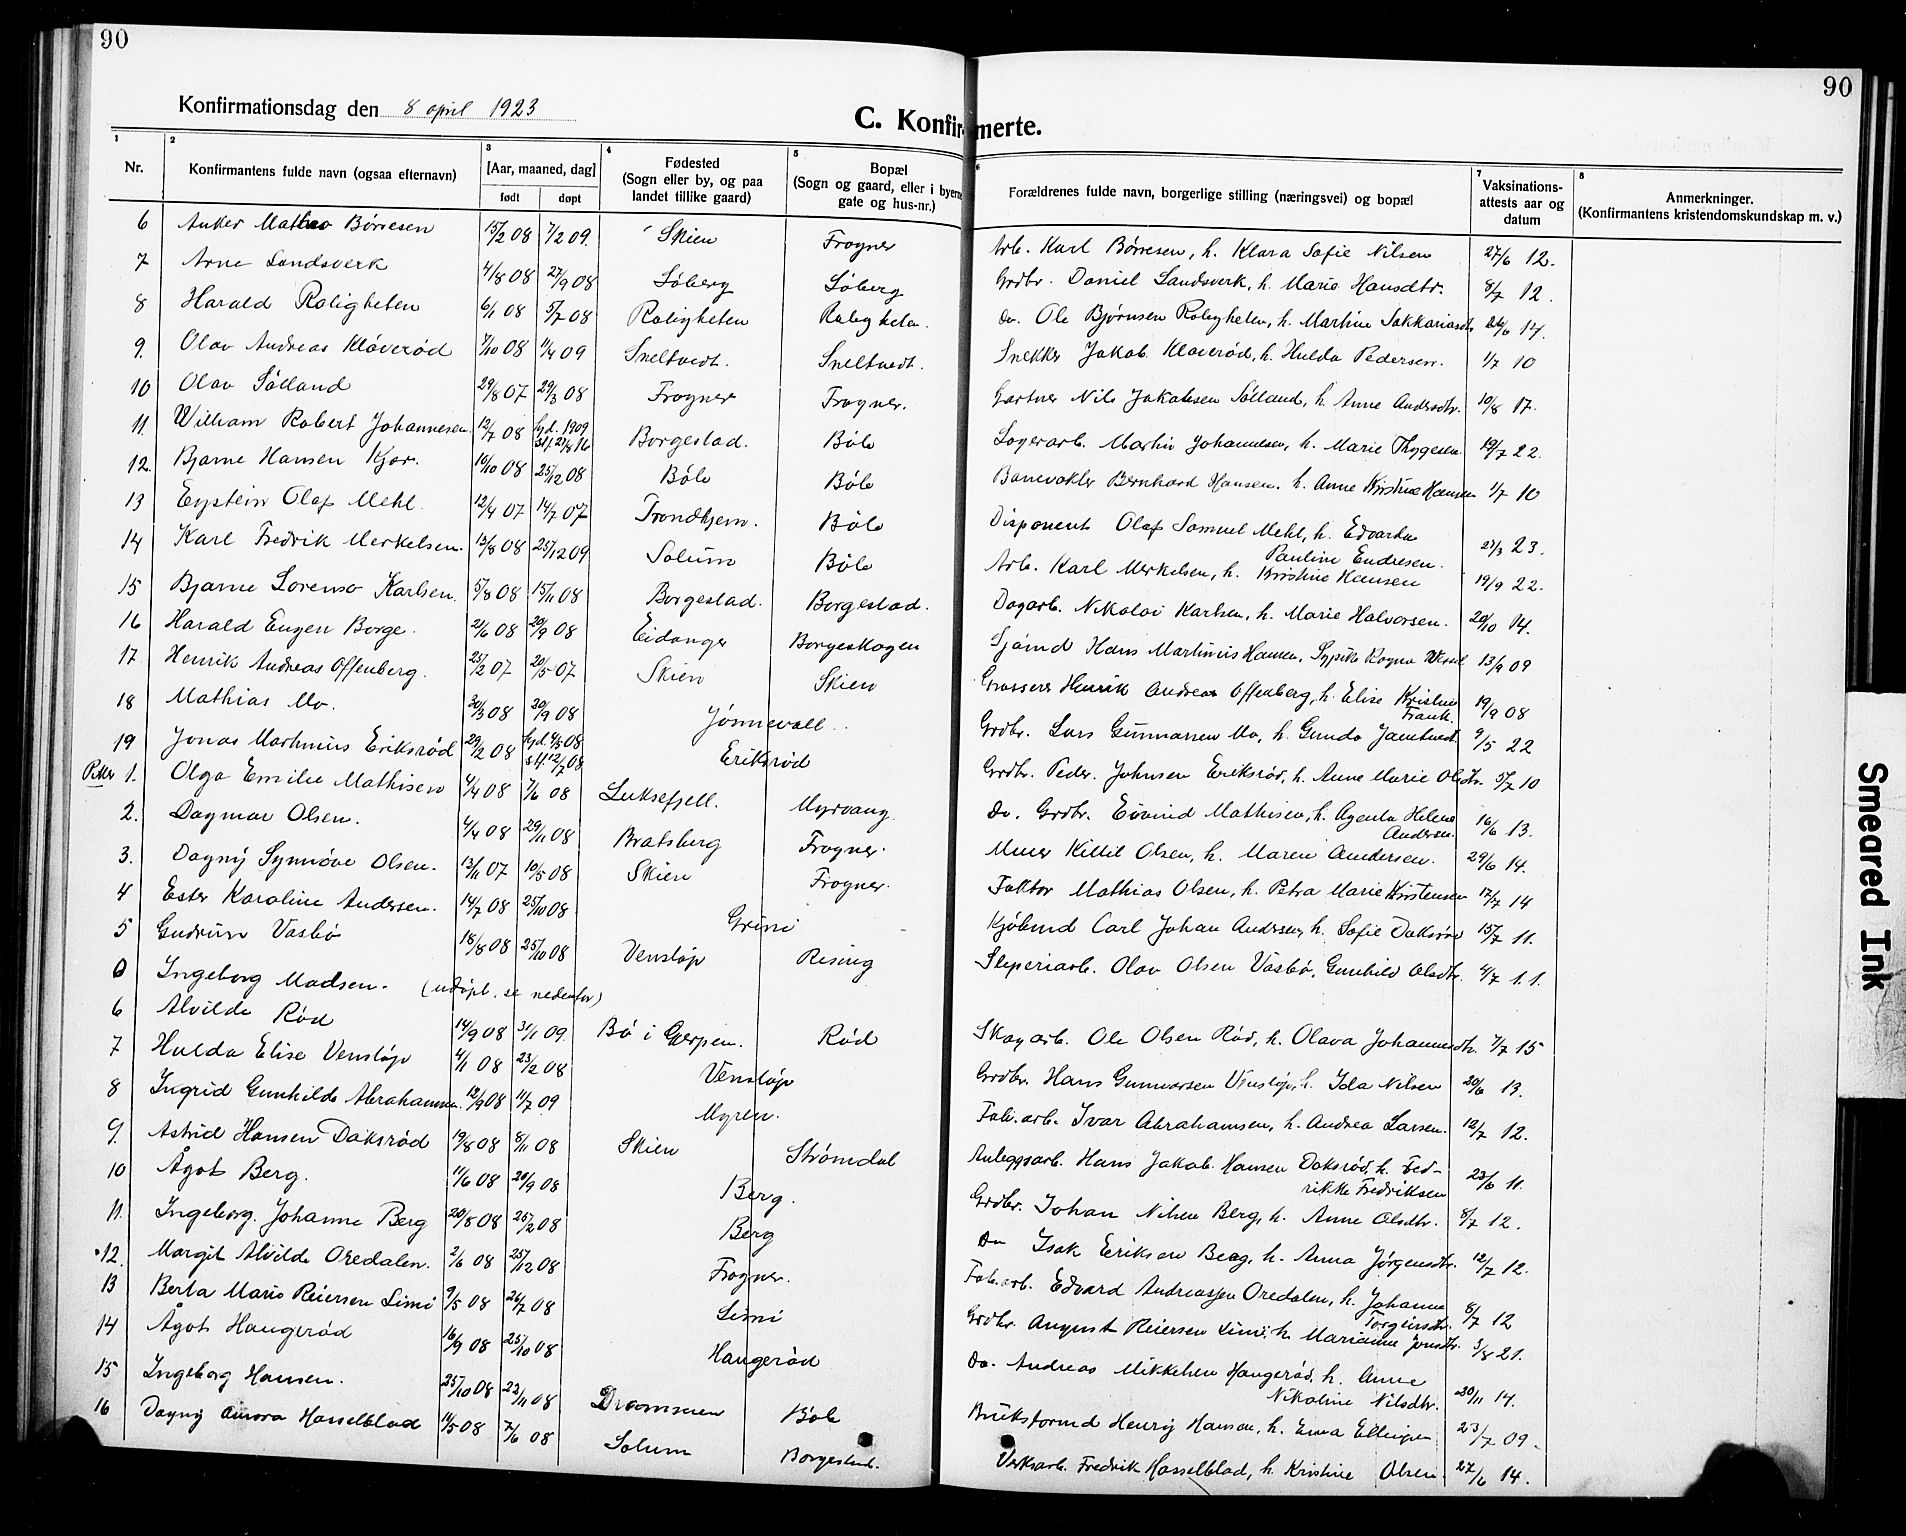 90
90
Konfirmationsdag den 8 april 1923
C. Konfirmerte.
1 2 3 4 5 6 7 8
Nr. Konfirmantens fulde navn (ogsaa efternavn) [Aar, maaned, dag] født døpt Fødested (Sogn eller by, og paa landet tillike gaard) Bopæl (Sogn og gaard, eller i byerne gate og hus-nr.) Forældrenes fulde navn, borgerlige stilling (næringsvei) og bopæl Vaksinations-attests aar og datum Anmerkninger. (Konfirmantens kristendomskundskap m. v.)
6 Anker Børresen 15/2 08 7/2 09. Skien Frogner Arb. Karl Børresen, h. Klara Sofie Nilsen 27/6 12.
7 Arne Landsverk 4/8 08 27/9 08 Løberg Løberg Grdbr. Daniel Landsverk, h. Marie Hansdtr. 8/7 12.
8 Harald Roligheten 6/1 08 5/7 08 Roligheten Roligheten. Do. Ole Bjørnsen Roligheten, h. Martine Sakkariasdtr. 26/6 14.
9. Olav Andreas Kløverød 7/10 08 11/4 09 Sneltvedt. Sneltvedt. Snekker Jakob Kløverød, h. Hulda Pedersen. 1/7 10
10 Olav Sølland 29/8 07 29/3 08 Frogner Frogner. Gartner Nils Jakobsen Sølland, h. Anne Andersdtr. 10/8 17.
11. William Robert Johannesen. 12/7 08 hjd. 1909 st.f. 27/8 16 Borgestad. Bøle Lagerarb. Martin Johannesen, h. Marie Thygesen 19/7 22.
12. Bjarne Hansen Kjør. 16/10 08 25/12 08 Bøle Bøle Banevokter Bernhard Hansen. h. Anne Kristine Hansen 1/7 10
13 Eystein Olaf Mehl. 12/4 07 14/7 07 Trondhjem. Bøle Disponent Olaf Samuel Mehl, h. Edvarda Pauline Endresen. 27/3 23.
14 Karl Fredrik Merkelsen. 13/8 08 25/12 09 Solum Bøle Arb. Karl Merkelsen, h. Kristine Hansen 19/9 22.
15 Bjarne Lorenso Karlsen. 5/8 08 15/11 08 Borgestad. Borgestad. Dagarb. Nikolai Karlsen, h. Marie Halvorsen. 20/10 14.
16 Harald Eugen Borge. 21/6 08 20/9 08 Eidanger Borgeskogen Sjømd Hans Martinius Hansen, 13/9 09
17. Henrik Andreas Offenberg. 25/2 07 20/5 07 Skien Skien Grosserer Henrik Andreas Offenberg, h. Elise Kristine Frank. 19/9 08
18 Mathias Mo. 30/3 08 20/9 08 Jønnevall. Grdbr. Lars Gunnarsen Mo, h. Gunda Jamtvedt 9/5 22
19 Jonas Martinius Eriksrød 29/2 08 hjd. 4/3 08 st.f. 12/7 08 Eriksrød Grdbr. Peder Johnsen Eriksrød, h. Anne Marie Olsdtr. 5/7 10
Piker 1. Olga Emilie Mathisen 4/4 08 7/6 08 Luksefjell. Myrvang Do. Grdbr. Eivind Mathisen, h. Agenta Helene Andersen. 16/6 13.
2. Dagmar Olsen. 4/4 08 29/11 08 Bratsberg Frogner. Murer Kittil Olsen, h. Maren Andersen. 29/6 14.
3. Dagny Synnøve Olsen. 13/11 07 10/5 08 Skien Frogner. Faktor Mathias Olsen, h. Petra Marie Kristensen 17/7 14
4 Ester Karoline Andersen. 14/7 08 25/10 08 Grini Kjøbmd Carl Johan Andersen, h. Sofie Doksrød 15/7 11.
5 Gudrun Vasbø 18/8 08 25/10 08 Venstøp Rising Sliperiarb. Olav Olsen Vasbø, Gunhild Olsdtr. 4/7 11.
0 Ingeborg Madsen. (udøpt, se nedenfor)
6 Alvilde Rød 14/9 08 31/1 09. Bø i Gjerpen. Rød Skogarb. Ole Olsen Rød, h. Olava Johannesdtr. 7/7 15
7 Hulda Elise Venstøp 4/1 08 23/2 08 Venstøp Grdbr. Hans Gunnarsen Venstøp, h. Ida Nilsen 20/6 13.
8 Ingrid Gunhilde Abrahamsen. 12/9 08 11/7 09 Myren. Fab.arb. Ivar Abrahamsen, h. Andrea Larsen. 12/7 12.
9. Astrid Hansen Doksrød 19/8 08 8/11 08 Skien Strømdal Anleggsarb. Hans Jakob Hansen Doksrød, h. Fredrikke Fredriksen 23/6 11.
10 Ågot Berg. 11/6 08 20/9 08 Berg. Grdbr. Johan Nilsen Berg, h. Anne Olsdtr. 8/7 12.
11. Ingeborg Johanne Berg 20/8 08 26/2 08 Berg Do Isak Eriksen Berg, h. Anna Jørgensdtr. 12/7 12.
12. Margit Alvilde Oredalen. 2/6 08 25/12 08 Frogner. Fab.arb. Edvard Andreassen Oredalen, h. Johanne Torgersdtr. 8/7 12
13 Berta Marie Reiersen Limi 9/5 08 26/7 08 Limi Grdbr. August Reiersen Limi, h. Marianne Jonsdtr. 3/8 21.
14 Ågot Haugerød 16/9 08 25/10 08 Haugerød Do. Andreas Mikkelsen Haugerød, h. Anne Nikoline Nilsdtr. 30/11 14.
15 Ingeborg Hansen. 25/10 08 22/11 08 Drammen Bøle Bruksformd Henry Hansen, h. Emma Ellingsen 23/7 09.
16 Dagny Aurora Hasselblad 14/5 08 7/6 08 Solum Borgestad. Verksarb. Fredrik Hasselblad, h. Kristine Olsen 27/6 14.
Smeared Ink